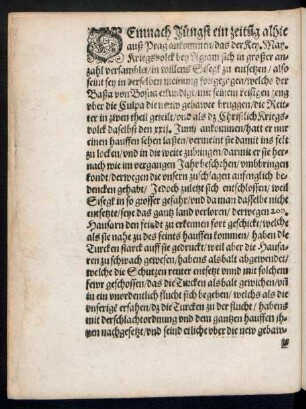 DEmnach Jüngst ein zeitũg alhie
auß Prag ankommen / das der Key. May.
Kriegsvolck bey Agram sich in großer an-
zahl versamblet / in willens Siseg̃k zu entsetzen / also
seint sey in derselben meinung fortgezogen / welchs der
Baßa von Bosna erkundigt, mit seinem reisigen zeug
vber die Culpa die neuw gebawte bruggen / die Reit-
ter in zwen theil geteilt / vnd als dz Christlich Kriegs-
volck daselbst den xxij. Junij ankommen / hatt er nur
einen hauffen sehen lasten / vermeint sie damit ins felt
zu locken / vnd in die weite zubringen / darmit er sie her-
nach wie im vergangen Jahr beschehen / vmbbringen
kondt / derwegen die vnsern zuschlagen anfenglich be-
dencken gehabt / Jedoch zuletzt sich entschlossen / weil
Sisegk in so grosser gefahr / vnd da man dasselbe nicht
entsetzt / sey das gantz land verloren / derwegen 200.
Hausarn den feindt zu erkennen fort geschickt / welche
als sie nahe zu des feints hauffen kommen / haben die
Turcken starck auff sie gedruckt / weil aber die Hausa-
ren zu schwach gewesen / habens alsbalt abgewendet /
welche die Schutzen reuter entsetzt vnnd mit solchem
fewr geschossen / das die Turcken alsbalt gewichen / vñ
in ein vnordenlich flucht sich begeben / welchs als die
vnserige erfahen / dz die Turcken zu der flucht / habens
mit der schlachtordnung vnd dem gantzen hauffen ih-
nen nachgesetzt / vnd seind etliche vber die new gebaw-